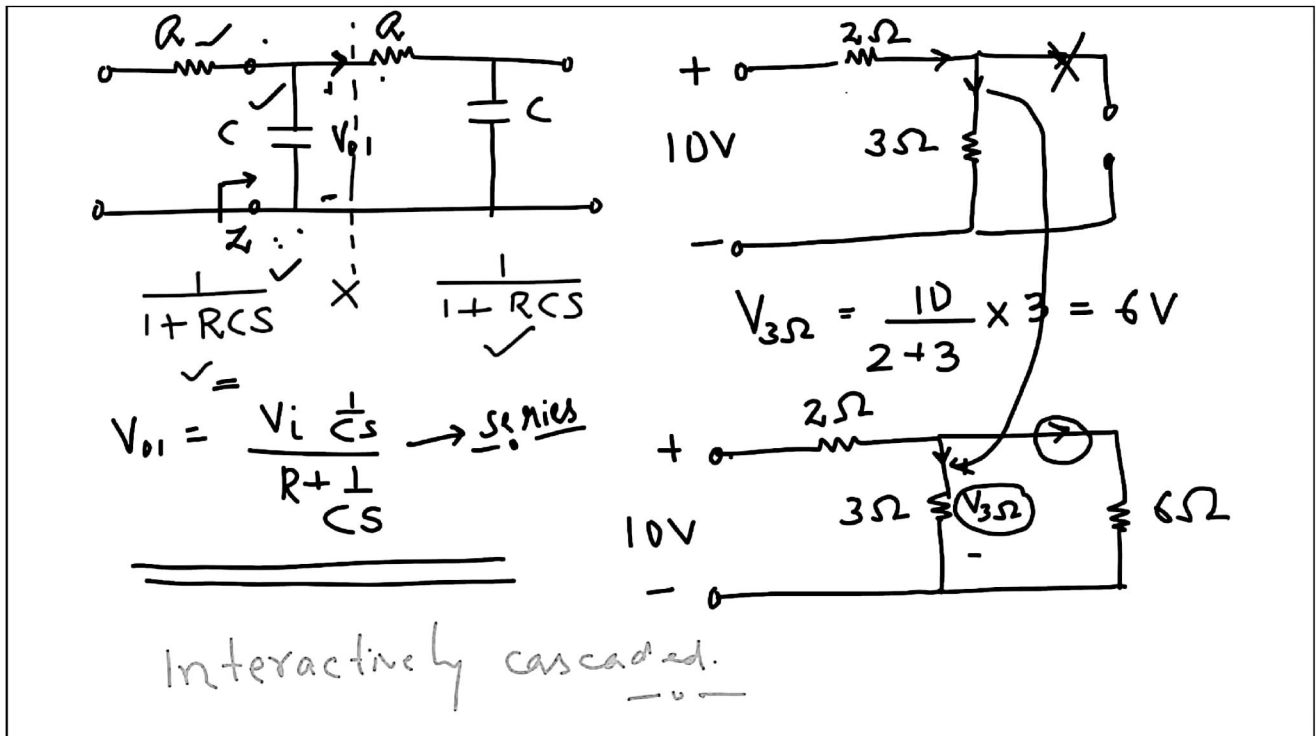 R R
C V01 C
Z
1/(1+RCS) X 1/(1+RCS)
V01 = (Vi 1/CS)/(R+1/CS) → series
Interactively cascaded.
2Ω
+
10V 3Ω
-
V3Ω = 10/(2+3) x 3 = 6V
2Ω
+
10V 3Ω V3Ω 6Ω
-
-